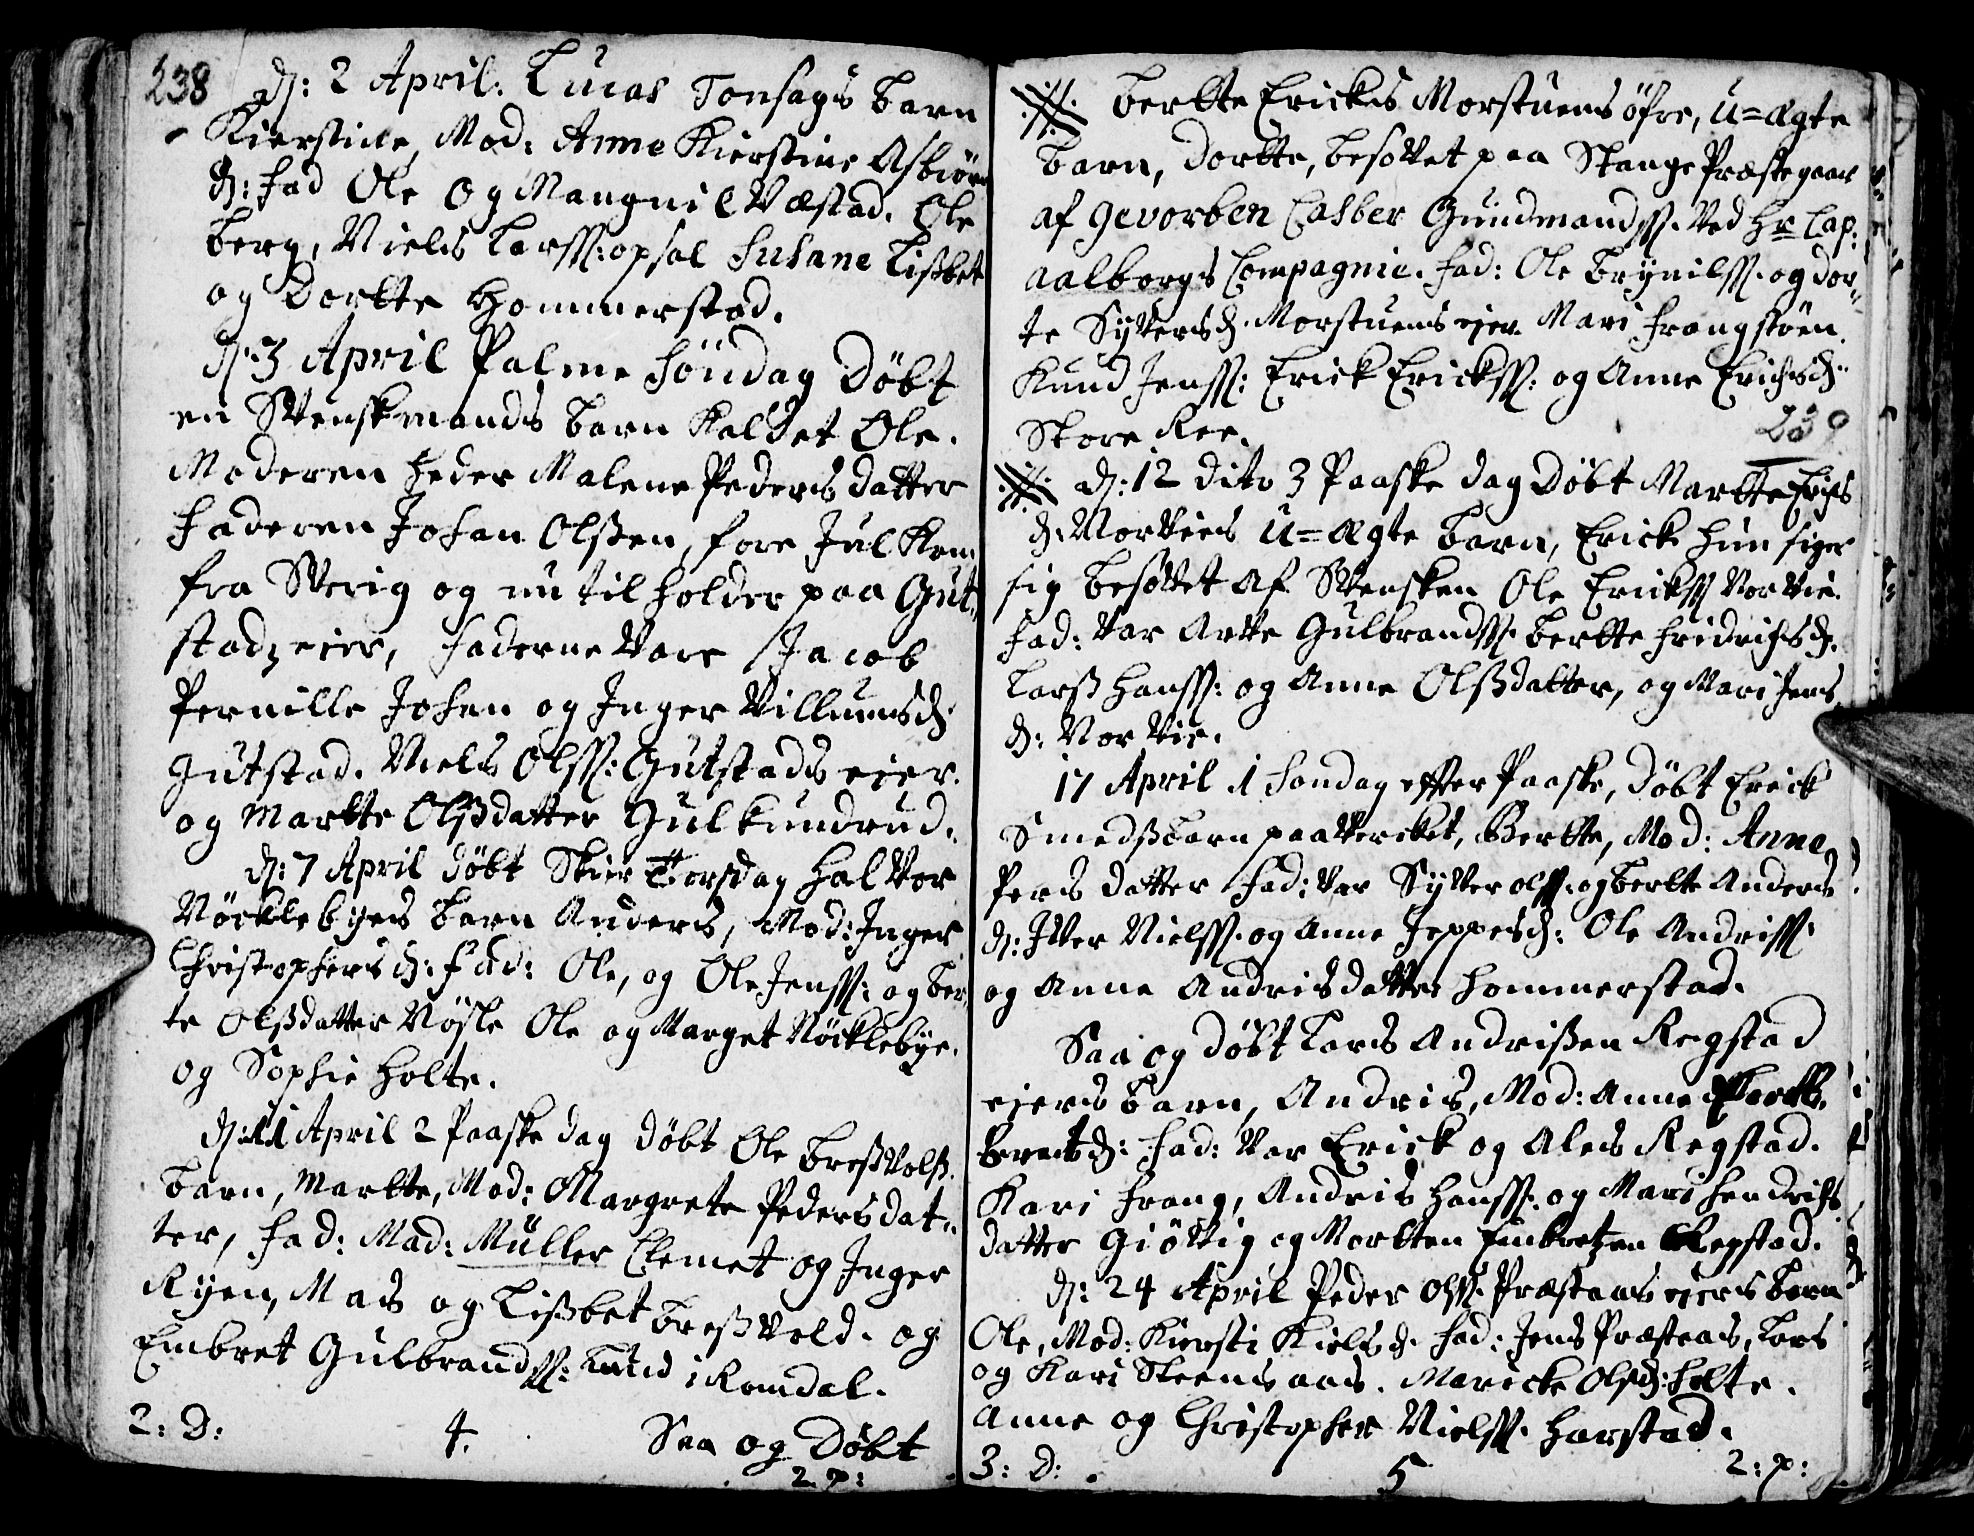 238
d: 2 April. Lucas Tonsags barn
Kierstine, Mod: Anne Kierstine Asbiörns
d: fad Ole Og Mangnil Wæstad. Ole
berg, Niels Larss: opsal Susane Lisbet
og Dortte Hommerstad.
d: 3 April Palme Söndag Döbt
en Swenskmands barn kaldet Ole.
Moderen heder Malene Peders datter
Faderen Johan Olssen, fore Jul kom
fra Swerig og nu tilholder paa Gut-
stadz eier, Faderne Vare Jacob
Pernille Johan og Inger Villumsd:
Gutstad. Niels Olss: Gutstads eier.
og Martte Olssdatter Gulkundrud.
d: 7 April döbt Skier Torsdag Halvor
Nöcklebyes barn Anders, Mod: Inger
Christophersd: Fad: Ole, og Ole Jenss: og Ber,
te Olssdatter Nösle Ole og Marget Nöcklebye.
og Sophie Holte.
d: 11 April 2 Paaske dag döbt Ole Bressvolss.
barn, Martte, Mod: Margrete Pedersdat-
ter, Fad: Mad: Müller Clemet og Inger
Ryen, Mads og Lissbet Bressvold. og
Embret Gulbrandss: i Romdal.
2: D: 4. Saa og Döbt
2. p:
Bertte Ericks Morstuens öfre, U=ægte
barn, Dortte, besovet paa Stange Præstegaar
af gevorben Casber Gundmandss. ved Hr Cap:
Aalborgs Compagnie. Fad: Ole Brynilss. og Dor-
te Syversd. Morstuens eier. Mari Frangstöen.
Knud Jenss: Erick Erickss: og Anne Erichsd:
Store Ree.
239
d: 12 dito 3 Paaske dag Döbt Martte Erichs
d. Norviens U=ægte barn, Erick hun siger
sig besovet af Swensken Ole Erickss Norvie.
Fad: var Arve Gulbrandss. Bertte Fridrichsd.
Larss Hanss: og Anne Olssdatter, og Mari Jens
d: Norvie.
17 April 1 Söndag efter Paaske, döbt Erick
Smedss barn paa Vercket, Bertte, Mod: Anne
Pers datter Fad: var Syver olss. og Bertte Anders
d: Iver Nielss. og Anne Jeppesd: Ole Andriss.
og Anne Andrisdatter Hommerstad.
Saa og döbt Lars Andrissen Regstad
eiers barn, Andris, Mod: Anne
d: Fad: Var Erick og Ales Regstad.
Kari Frang, Andris Hanss. og Mari Hendrichs
datter Giövig og Mortten Embretzen Regstad.
d: 24 April Peder Olss. Præstaas eiers barn
Ole, Mod: Kiersti Kielsd. Fad: Jens Præstaas, Lars
og Kari Steensaas. Maricke Olsd: Holte.
Anne og Christopher Nielss. Harstad.
3: D: 5 2: p: